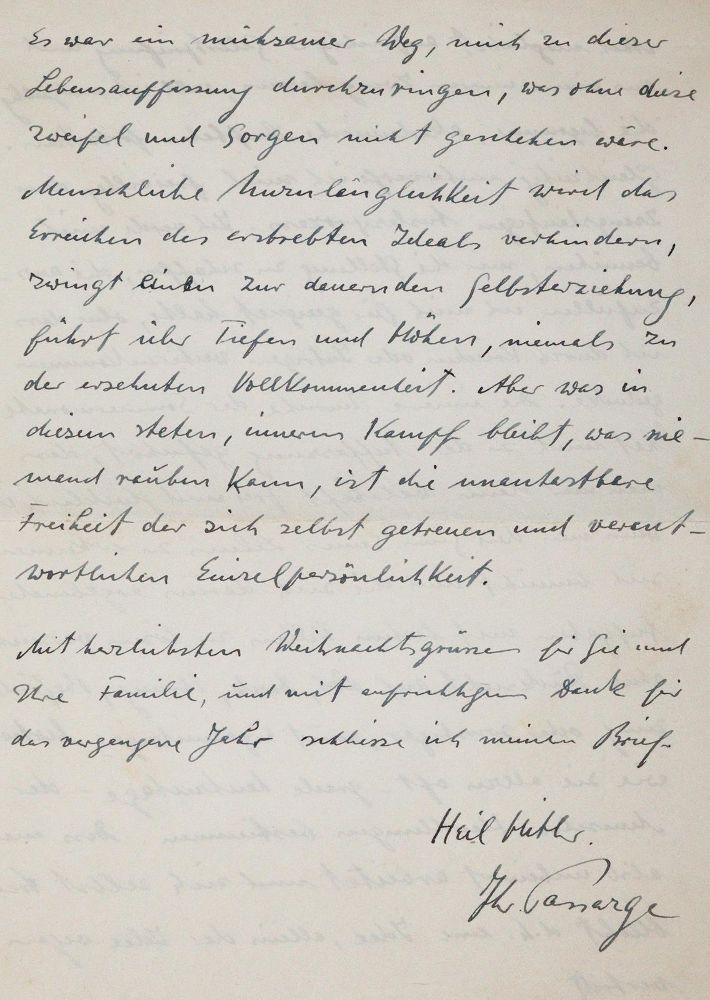 Es war ein mühsamer Weg, mich zu dieser
Lebensauffassung durchzuringen, was ohne diese
Zweifel und Sorgen nicht geschehen wäre.
Menschliche Unzulänglichkeit wird das
Erreichen des erstrebten Ideals verhindern,
zwingt einen zur dauernden Selbsterziehung,
führt über Tiefen und Höhen, niemals zu
der ersehnten Vollkommenheit. Aber was in
diesem steten, inneren Kampf bleibt, was nie-
mand rauben kann, ist die unantastbare
Freiheit der sich selbst getreuen und verant-
wortlichen Einzelpersönlichkeit.
Mit herzlichsten Weihnachtsgrüssen für Sie und
Ihre Familie, und mit aufrichtigem Dank für
das vergangene Jahr schliesse ich meinen Brief.
Heil Hitler.
Ihr Passarge